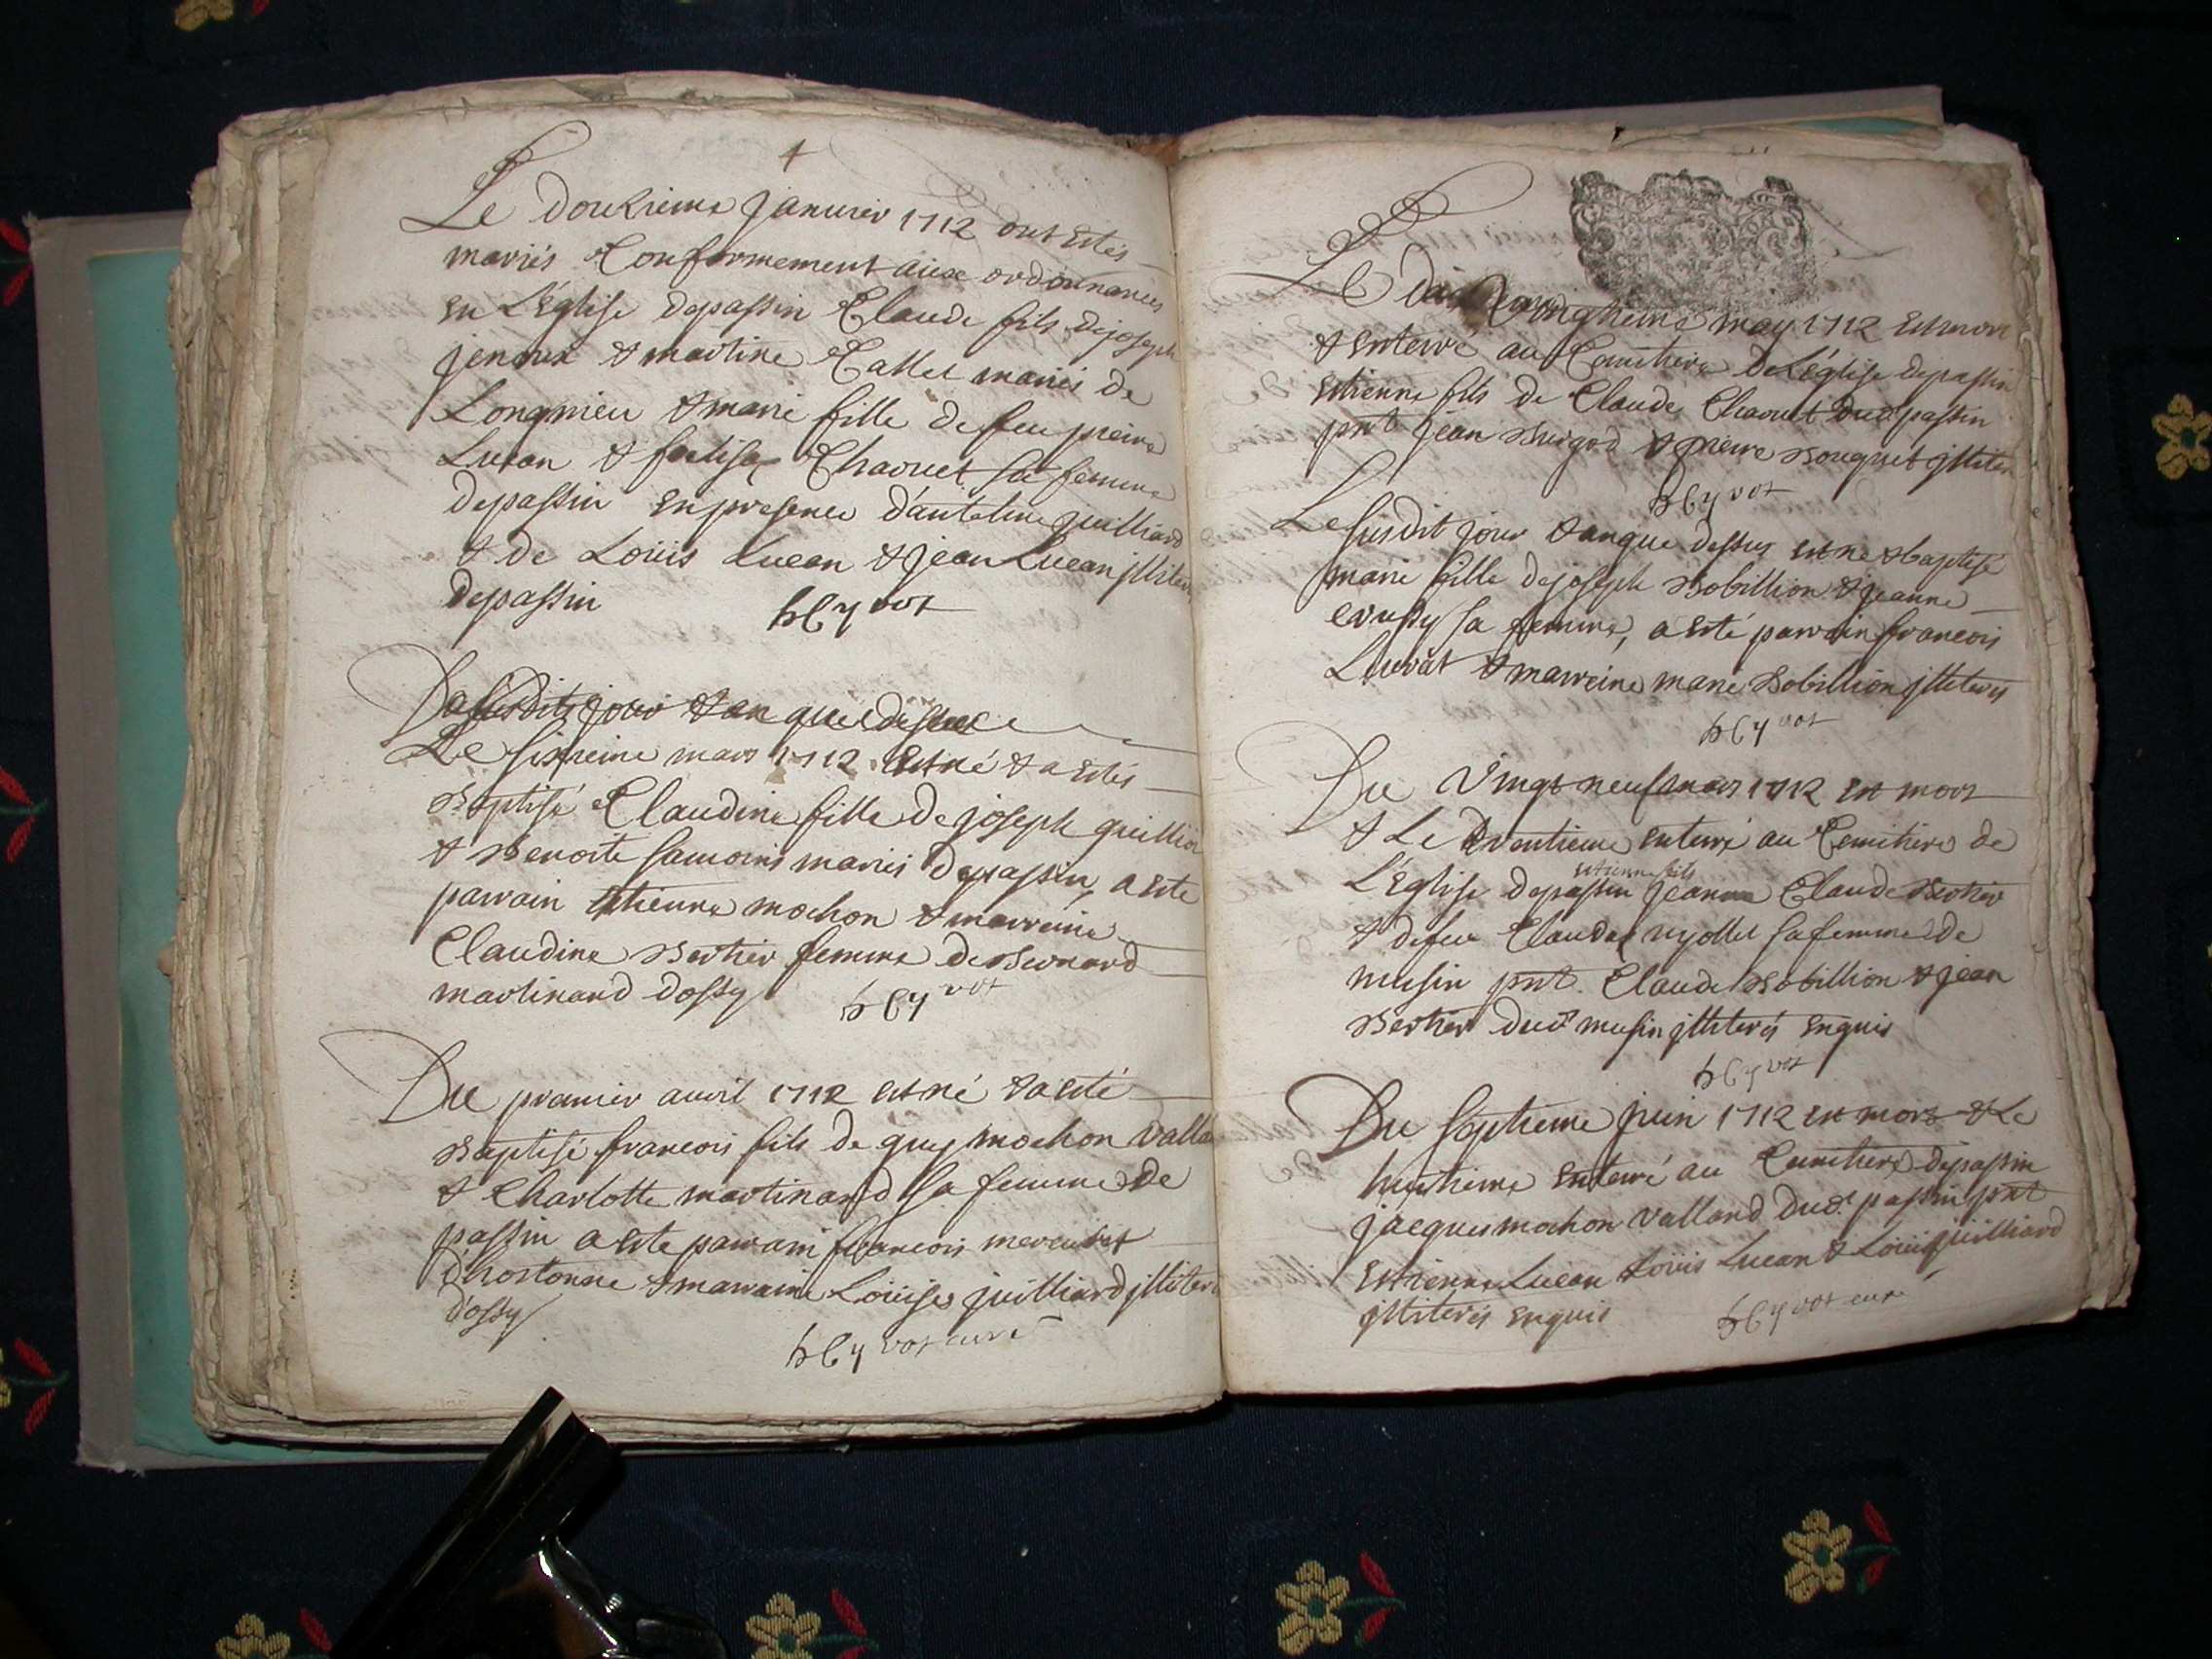 Le douzieme janvier 1712 ont estés
mariés Conformement aux ordonnances
en L'église depassin Claude fils dejoseph
& martine mariés de
Longnieu & marie fille de feu pierre
Lucan & Chaouet sa femme
depassin enpresence d'antelme juilliard
& de Loüis Lucan & jean Lucan jlliterés
depassin
Le sixieme mars 1712 est né & a estés
Baptisé Claudine fille de joseph
& Benoite mariés depassin, a este
parrain Estienne mochon & marreine
Claudine Bertier femme de Bernard
martinand dossy
Du premier avril 1712 est né & a esté
Baptisé francois fils de guy mochon
& Charlotte martinand sa femme de
passin a este parrain francois
d'hostonne & marraine Loüise juilliard jlliterés
d'ossy
curé
may 1712 est mort
& enterré au Cemitiere de L'église depassin
Estienne fils de Claude Chaouet dud passin
pnt jean & pierre jlliterés
Le susdit jour & anque dessus est né & baptisé
marie fille de joseph Bobillion & jeanne
sa femme, a esté parrain francois
Louvat & marreine marie Bobillion jlliterés
Du vingt neuf 1712 est mort
& Le trentieme enterré au Cemitiere de
estienne fils
L'église depassin jean Claude Bertier
& defeu Clauda sa femme de
musin pnt. Claude Bobillion & jean
Bertier dud musin jlliterés enquis
Du septieme juin 1712 est mort & Le
huitieme enterré au Cemitiere depassin
jacques mochon valland dud. passin pnt
Estienne Lucan Loüis Lucan & Loüis juilliard
jlliterés enquis
curé